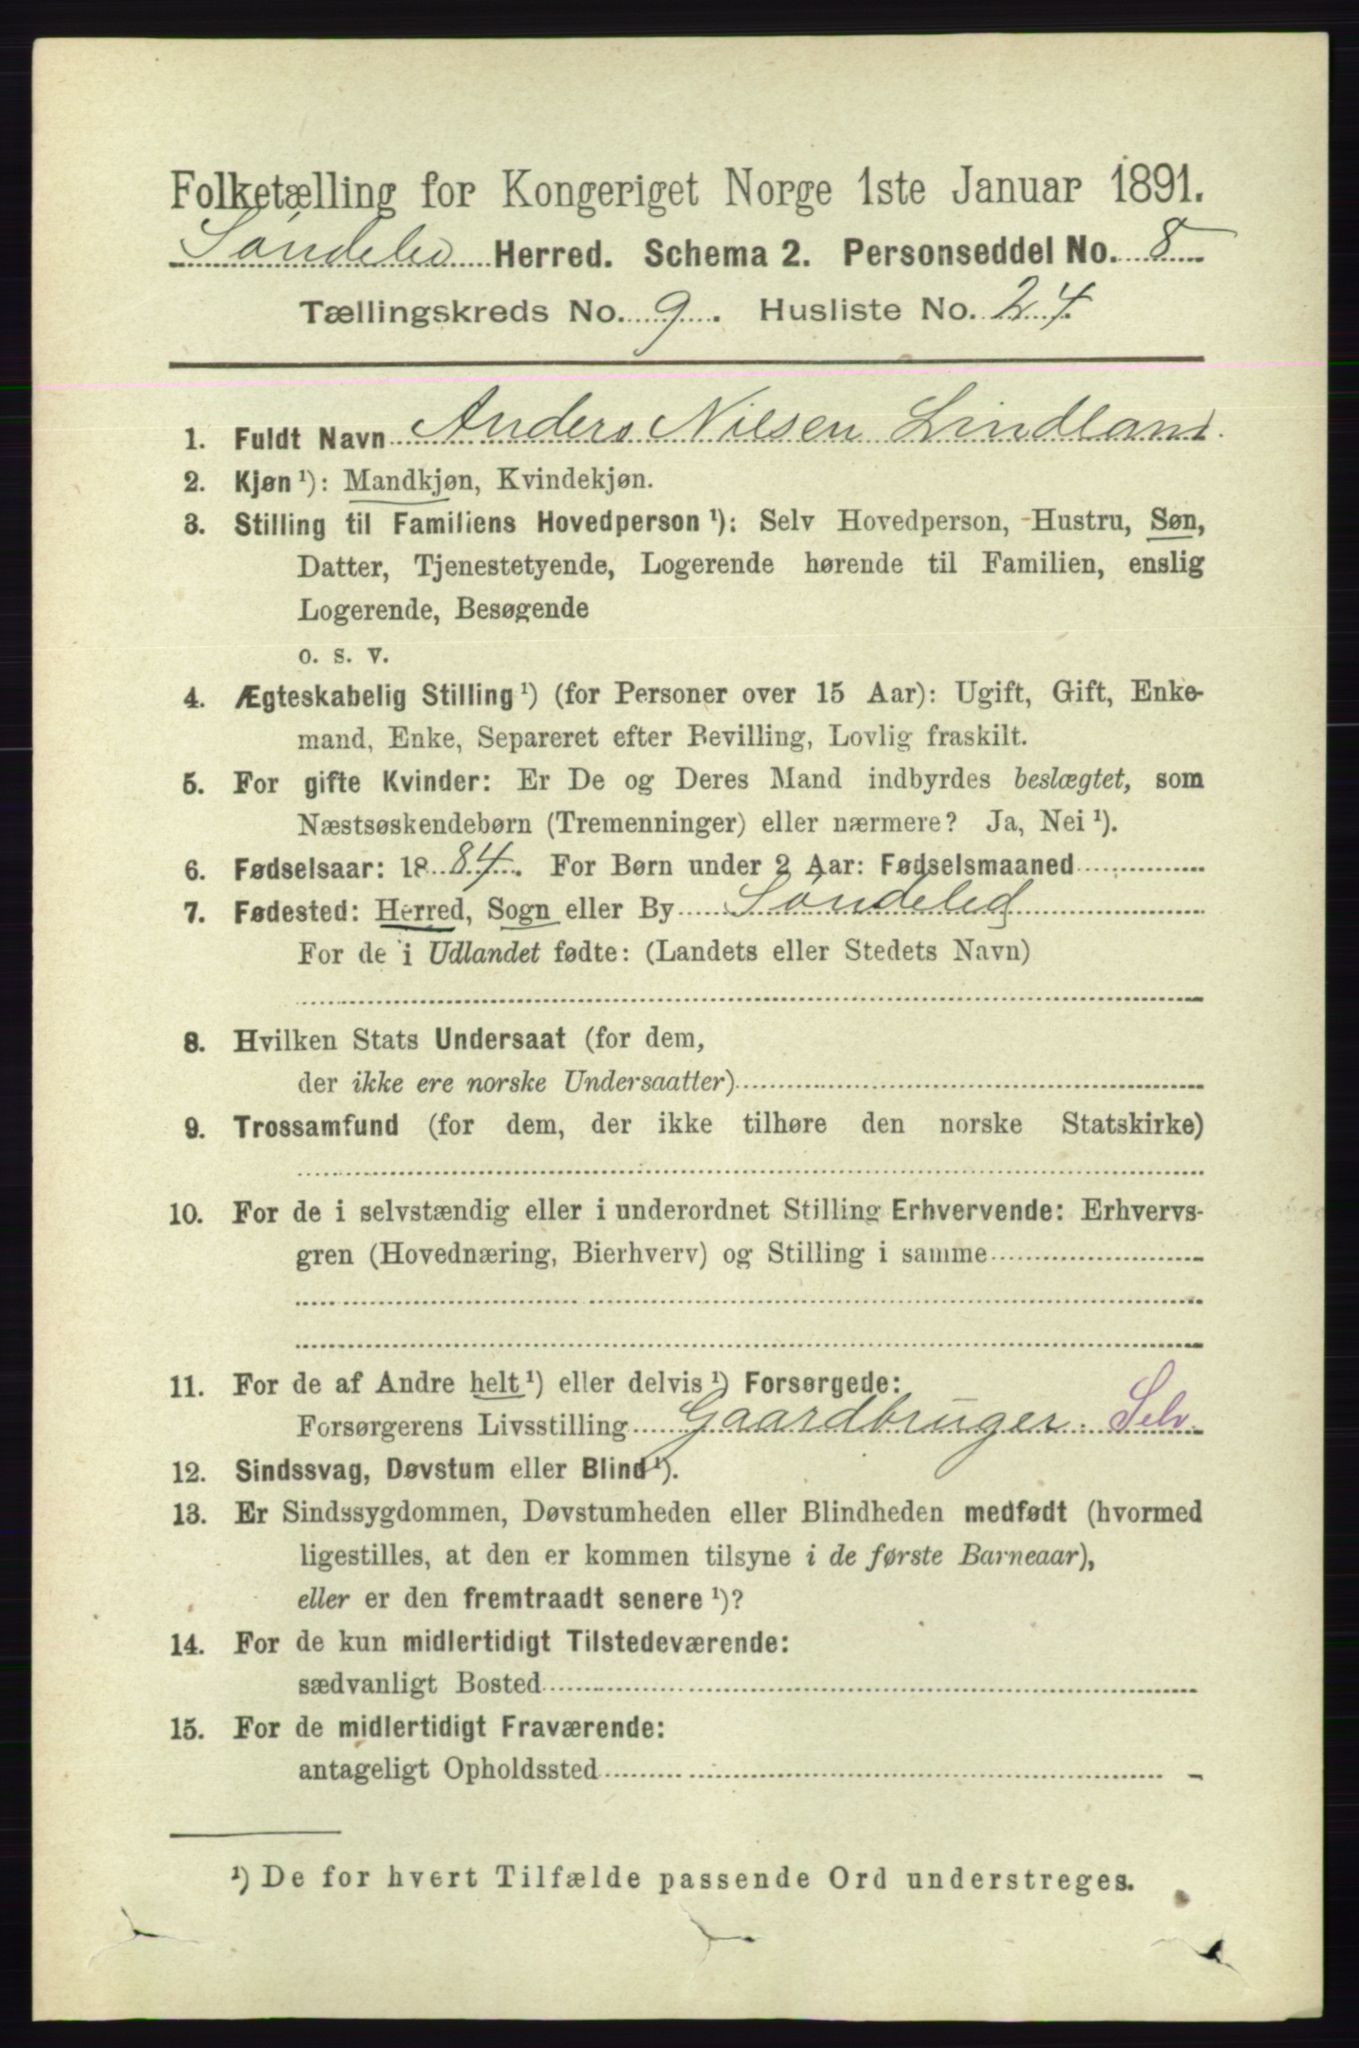 Folketælling for Kongeriget Norge 1ste Januar 1891.
Søndeled Herred. Schema 2. Personseddel No. 8
Tællingskreds No. 9. Husliste No. 24.
1. Fuldt Navn Anders Nilsen Lindland
2. Kjøn ¹): Mandkjøn, Kvindekjøn.
3. Stilling til Familiens Hovedperson ¹): Selv Hovedperson, Hustru, Søn,
Datter, Tjenestetyende, Logerende hørende til Familien, enslig
Logerende, Besøgende
o. s. v.
4. Ægteskabelig Stilling ¹) (for Personer over 15 Aar): Ugift, Gift, Enke-
mand, Enke, Separeret efter Bevilling, Lovlig fraskilt.
5. For gifte Kvinder: Er De og Deres Mand indbyrdes beslægtet, som
Næstsøskendebørn (Tremenninger) eller nærmere? Ja, Nei ¹).
6. Fødselsaar: 1884. For Børn under 2 Aar: Fødselsmaaned
7. Fødested: Herred, Sogn eller By Søndeled
For de i Udlandet fødte: (Landets eller Stedets Navn)
8. Hvilken Stats Undersaat (for dem,
der ikke ere norske Undersaatter)
9. Trossamfund (for dem, der ikke tilhøre den norske Statskirke)
10. For de i selvstændig eller i underordnet Stilling Erhvervende: Erhvervs-
gren (Hovednæring, Bierhverv) og Stilling i samme
11. For de af Andre helt ¹) eller delvis ¹) Forsørgede:
Forsørgerens Livsstilling Gaardbruger. Selv.
12. Sindssvag, Døvstum eller Blind ¹).
13. Er Sindssygdommen, Døvstumheden eller Blindheden medfødt (hvormed
ligestilles, at den er kommen tilsyne i de første Barneaar),
eller er den fremtraadt senere ¹)?
14. For de kun midlertidigt Tilstedeværende:
sædvanligt Bosted
15. For de midlertidigt Fraværende:
antageligt Opholdssted
¹) De for hvert Tilfælde passende Ord understreges.